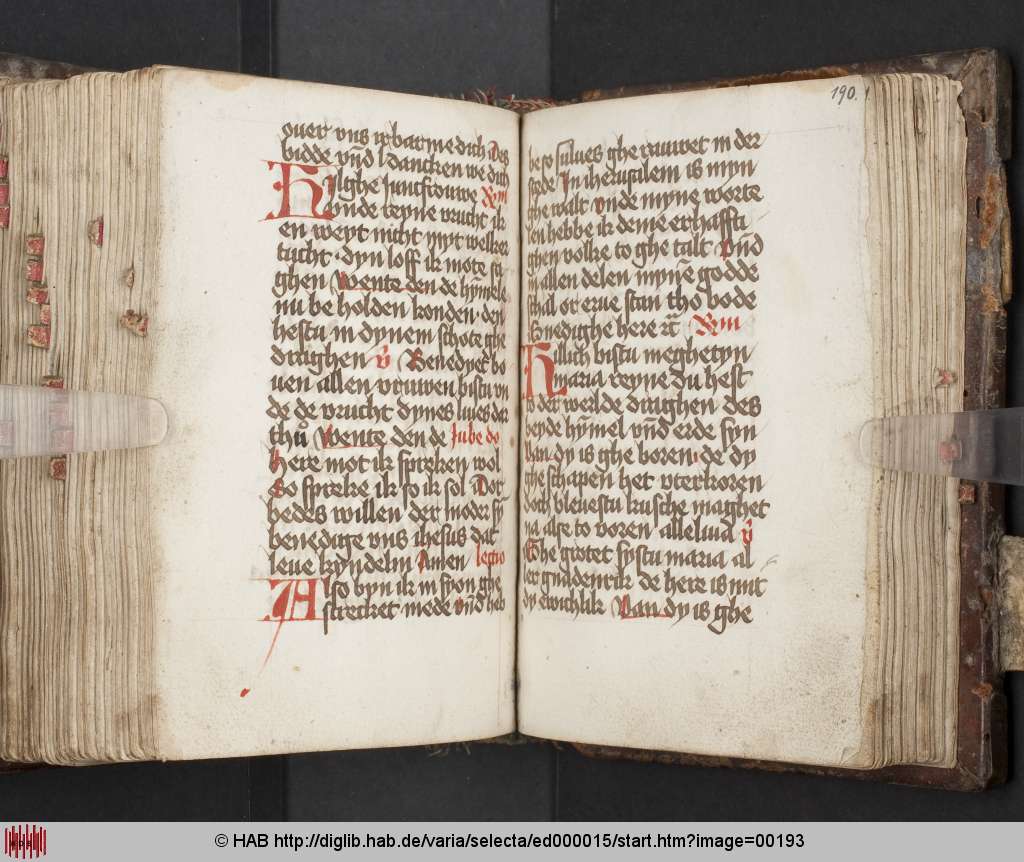 ouer vns vrbarme dich Des
bidde vnd danken we dich
Hilghe juncfrouwe Rm
vnde reyne vrucht ik
en weyt nicht myt welker
tucht dyn loff ik mote sa
ghen Wente den de hymele
nu be holden konden den
hestu in dynem schote ghe
draghen v Benedyet bo
uen allen vruwen bistu vn
de de vrucht dynes liues dat
Wente den de Iube do
Here mot ik spreken wol
So spreke ik so ik sol Dor
hedes willen der moder
benedige vns ihesus dat
leue kyndelin Amen lectio
Also byn ik in syon ghe
strecket mede vnd heb
190.
be so sulues ghe rauwet in der
stede In iherusalem is myn
ghe walt vnde myne worte
len hebbe ik deme erhaffti
ghen volke to ghe talt Vnd
in allen delen myne godde
schal or erue stan tho bode
Benedighe here Rm
Hillich bistu meghetyn
maria reyne du hest
der werlde draghen des
beyde hymel vnd erde syn
Van dy is ghe boren de dy
ghe schapen het vterkoren
doch bleuestu kusche maghet
na alse to voren alleluia v
Ghe grotet systu maria al
er gnadenrik de here is mit
dy ewichlik Van dy is ghe
© HAB http://diglib.hab.de/varia/selecta/ed000015/start.htm?image=00193